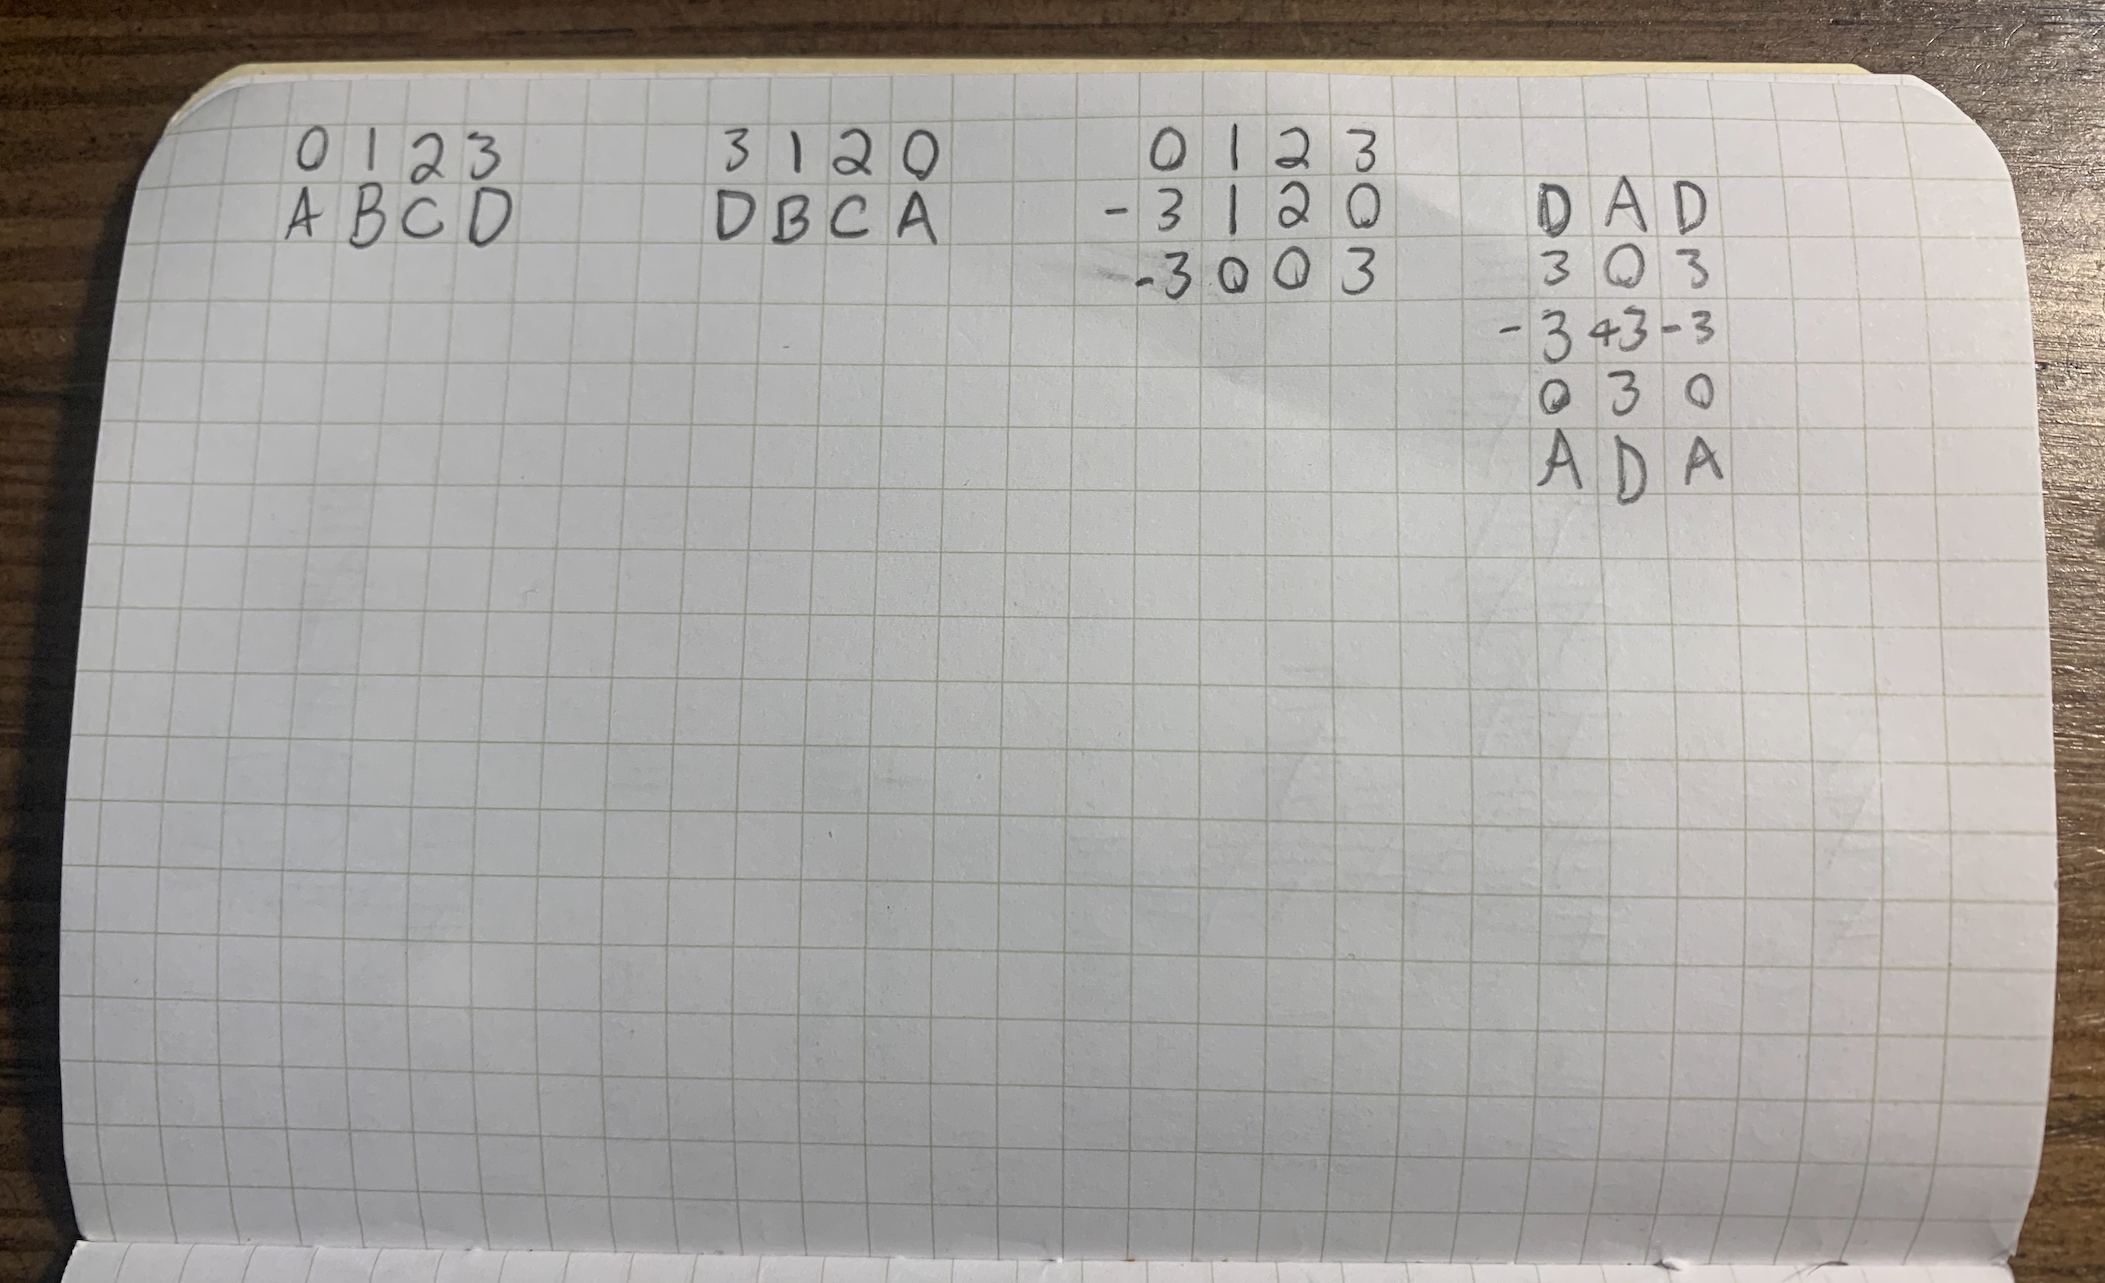 0 1 2 3
A B C D
3 1 2 0
D B C A
0 1 2 3
- 3 1 2 0
-3 0 0 3
D A D
3 0 3
-3 +3 -3
0 3 0
A D A